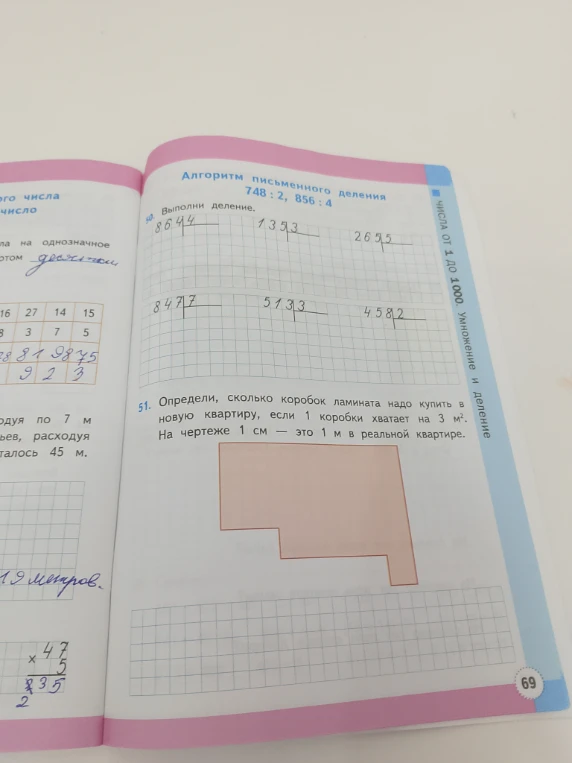 ого числа
число
ла на однозначное
отом
16 27 14 15
3 7 5
81 98 75
9 2 3
одуя по 7 м
ьев, расходуя
талось 45 м.
19 метров.
× 47
5
235
2
Алгоритм письменного деления
748 : 2, 856 : 4
50. Выполни деление.
864 4 135 3 265 5
847 7 513 3 458 2
51. Определи, сколько коробок ламината надо купить в
новую квартиру, если 1 коробки хватает на 3 м².
На чертеже 1 см — это 1 м в реальной квартире.
ЧИСЛА ОТ 1 ДО 1000. Умножение и деление
69